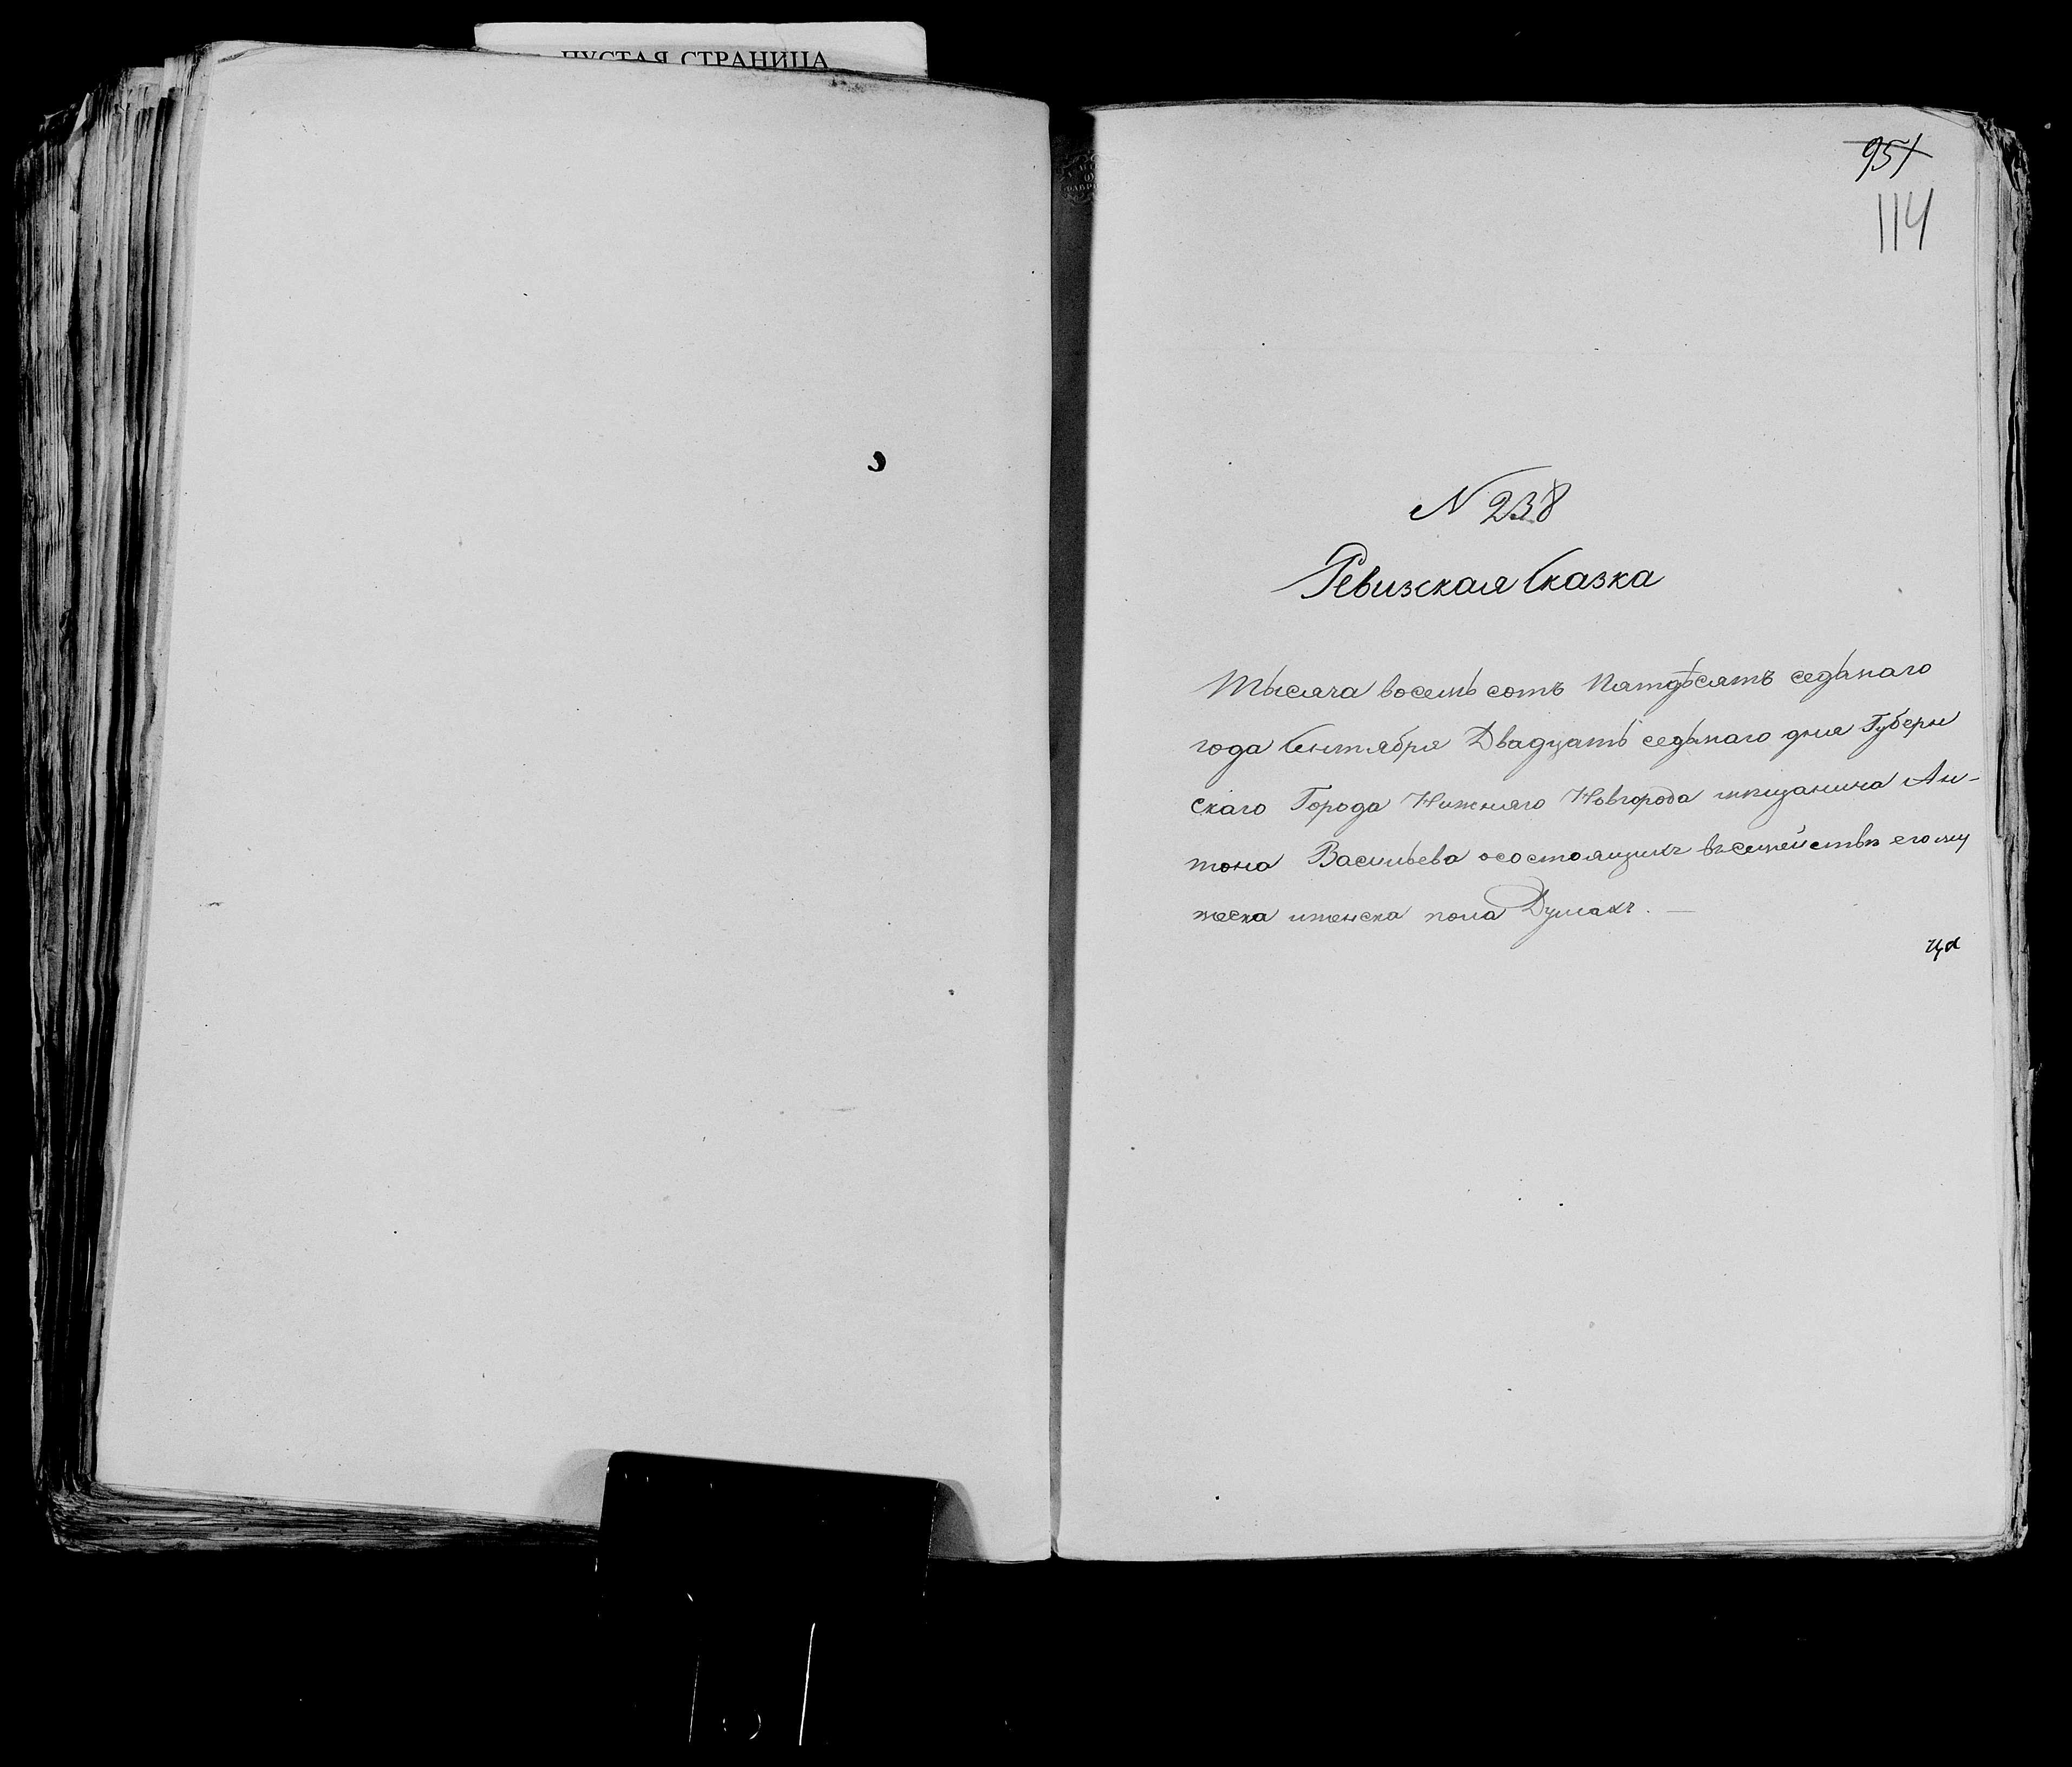 ПУСТАЯ СТРАНИЦА
951
114
N 238
Ревизская Сказка
Тысяча восемь сотъ Пятдѣсятъ седьмаго
года Сентября Двадцать седьмаго дня Губерн
скаго Города Нижняго Новгорода мѣщанина Ан-
тона Васильева осостоящихъ въ семействѣ его му
жеска иженска пола Душахъ. —